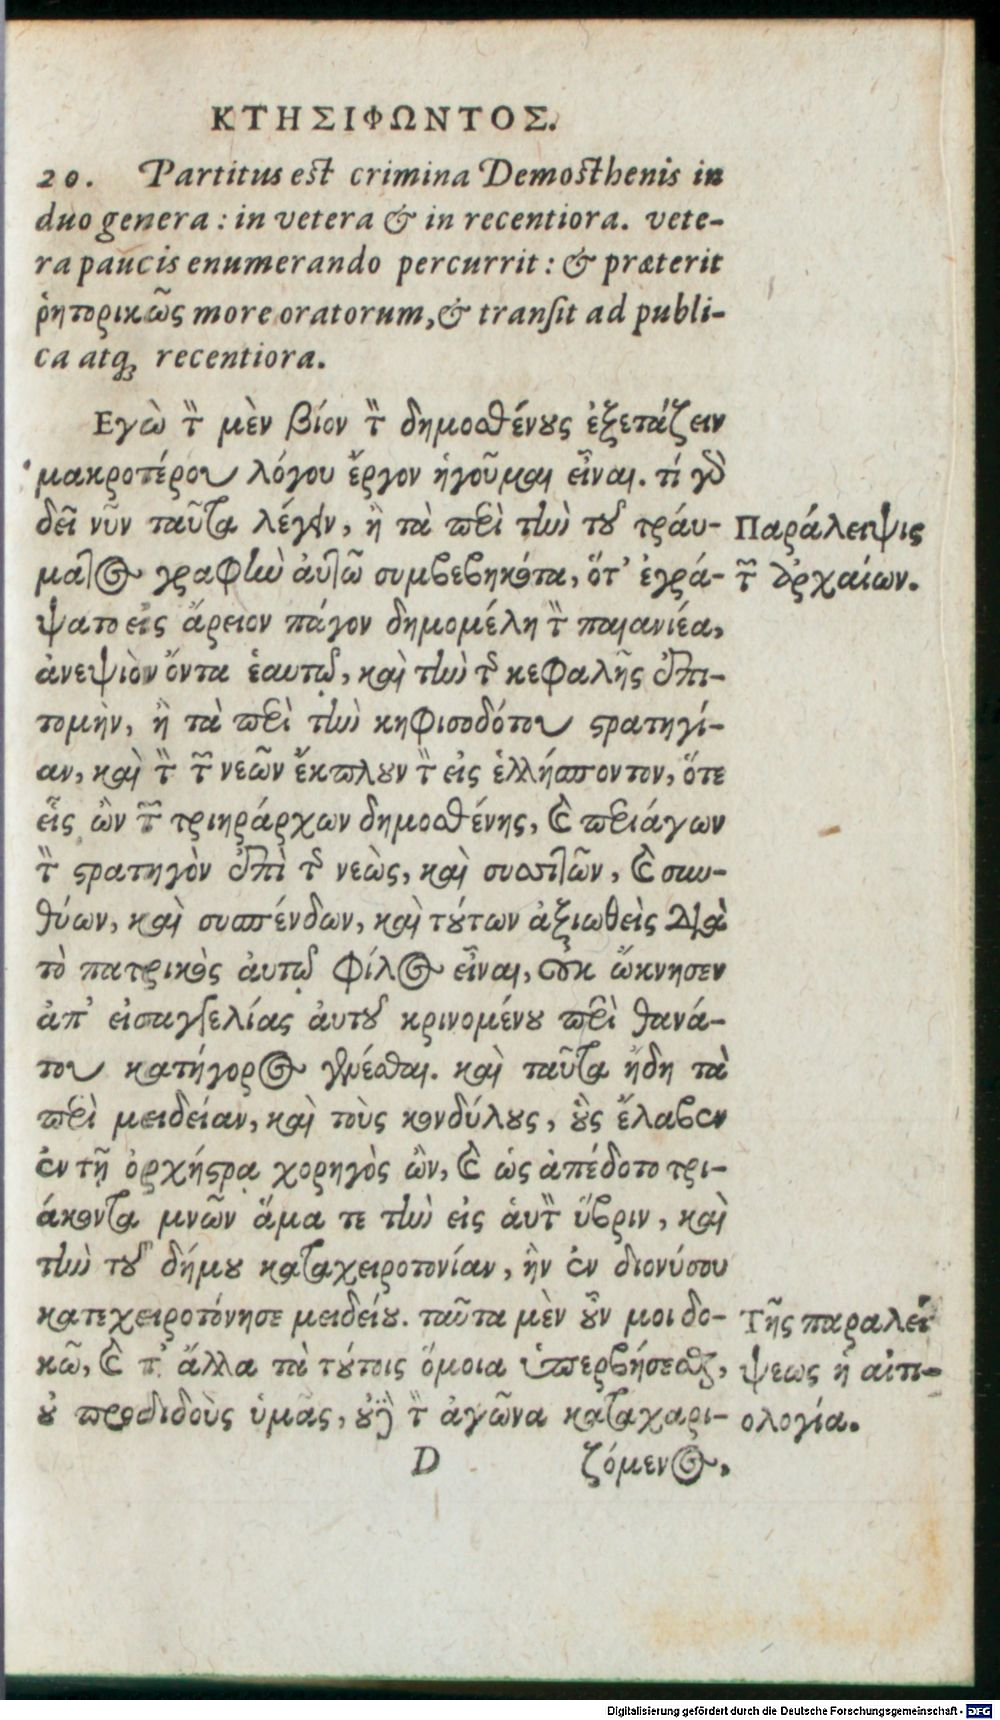 ΚΤΗΣΙΦΩΝΤΟΣ.
20. Partitus est crimina Demosthenis in
duo genera: in vetera & in recentiora. vete-
ra paucis enumerando percurrit: & præterit
ῥητορικῶς more oratorum, & transit ad publi-
ca atq; recentiora.
Εγὼ τὸν μὲν βίον τὸν δημοσθένους ἐξετάζειν
μακροτέρου λόγου ἔργον ἡγοῦμαι εἶναι. τί γὰρ
δεῖ νῦν ταῦτα λέγειν, ἢ τὰ περὶ τὴν τοῦ τραύ-
ματος γραφὴν αὐτῶ συμβεβηκότα, ὅτ' ἐγρά-
ψατο εἰς ἄρειον πάγον δημομέλη τὸν παιανιέα,
ἀνεψιὸν ὄντα ἑαυτῷ, καὶ τὴν τῆς κεφαλῆς ἐπι-
τομὴν, ἢ τὰ περὶ τὴν κηφισοδότου στρατηγί-
αν, καὶ τὸν τῶν νεῶν ἔκπλουν τὸν εἰς ἑλλήσποντον, ὅτε
εἷς ὢν τῶν τριηράρχων δημοσθένης, καὶ περιάγων
τὸν στρατηγὸν ἐπὶ τῆς νεὼς, καὶ συσσιτῶν, καὶ συν-
θύων, καὶ συσπένδων, καὶ τούτων ἀξιωθεὶς διὰ
τὸ πατρικὸς αὐτῷ φίλος εἶναι, οὐκ ὤκνησεν
ἀπ' εἰσαγγελίας αὐτοῦ κρινομένου περὶ θανά-
του κατήγορος γενέσθαι. καὶ ταῦτα ἤδη τὰ
περὶ μειδείαν, καὶ τοὺς κονδύλους, οὓς ἔλαβεν
ἐν τῇ ὀρχήστρᾳ χορηγὸς ὢν, καὶ ὡς ἀπέδοτο τρι-
άκοντα μνῶν ἅμα τε τὴν εἰς αὑτὸν ὕβριν, καὶ
τὴν τοῦ δήμου καταχειροτονίαν, ἣν ἐν διονύσου
κατεχειροτόνησε μειδείου. ταῦτα μὲν οὖν μοι δο-
κῶ, καὶ τ' ἄλλα τὰ τούτοις ὅμοια ὑπερβήσεσθαι,
οὐ προδιδοὺς ὑμᾶς, οὐδὲ τὸν ἀγῶνα καταχαρι-
D ζόμενος,
Παράλειψις
τῶν ἀρχαίων.
Τῆς παραλεί
ψεως ἡ αἰτι-
ολογία.
Digitalisierung gefördert durch die Deutsche Forschungsgemeinschaft - DFG